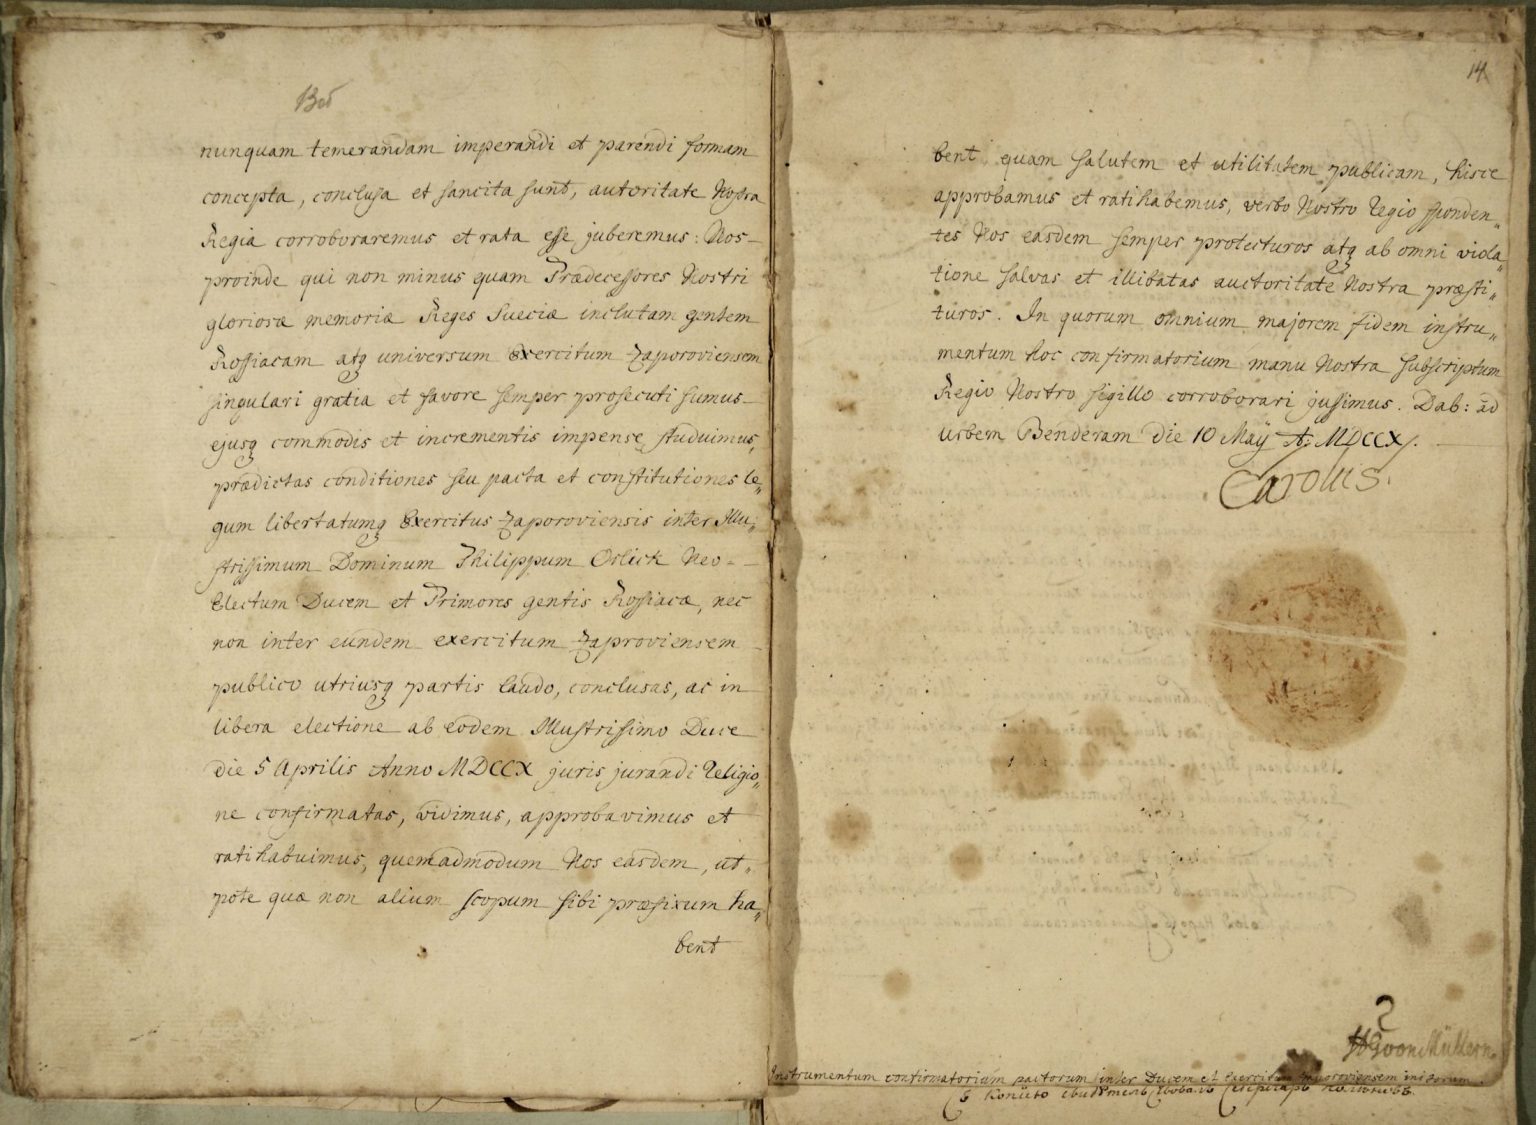 nunquam temerandam imperandi et parendi formam
concepta, conclusa et sancita sunt, autoritate Nostra
Regia corroboraremus et rata esse juberemus: Nos-
proinde qui non minus quam Prædecessores Nostri
gloriosæ memoriæ Reges Sueciæ inclutam gentem
Rossiacam atq universum exercitum Zaporoviensem
singulari gratia et favore semper prosecuti sumus
ejusq commodis et incrementis impense studuimus,
prædictas conditiones seu pacta et constitutiones le„
gum libertatumq Exercitus Zaporoviensis inter Illu„
strissimum Dominum Philippum Orlick Neo-
Electum Ducem et Primores gentis Rossiacæ, nec
non inter eundem exercitum Zaproviensem
publico utriusq partis laudo, conclusas, ac in
libera electione ab eodem Illustrissimo Duce
die 5 Aprilis Anno MDCCX juris jurandi Religio„
ne confirmatas, vidimus, approbavimus et
ratihabuimus, quemadmodum Nos easdem, ut„
pote quæ non alium scopum sibi præfixum ha„
bent
14
bent quam salutem et utilitatem publicam, hisce
approbamus et ratihabemus, verbo Nostro Regio sponden„
tes Nos easdem semper protecturos atq ab omni viola„
tione salvas et illibatas auctoritate Nostra præsti„
turos. In quorum omnium majorem fidem instru„
mentum hoc confirmatorium manu Nostra subscriptum
Regio Nostro sigillo corroborari jussimus. Dab: ad
urbem Benderam die 10 Maÿ Aô MDCCX.
Carolus.
HG von Müllern.
Instrumentum confirmatorium pactorum inter Ducem et exercitum Zaporoviensem initorum.